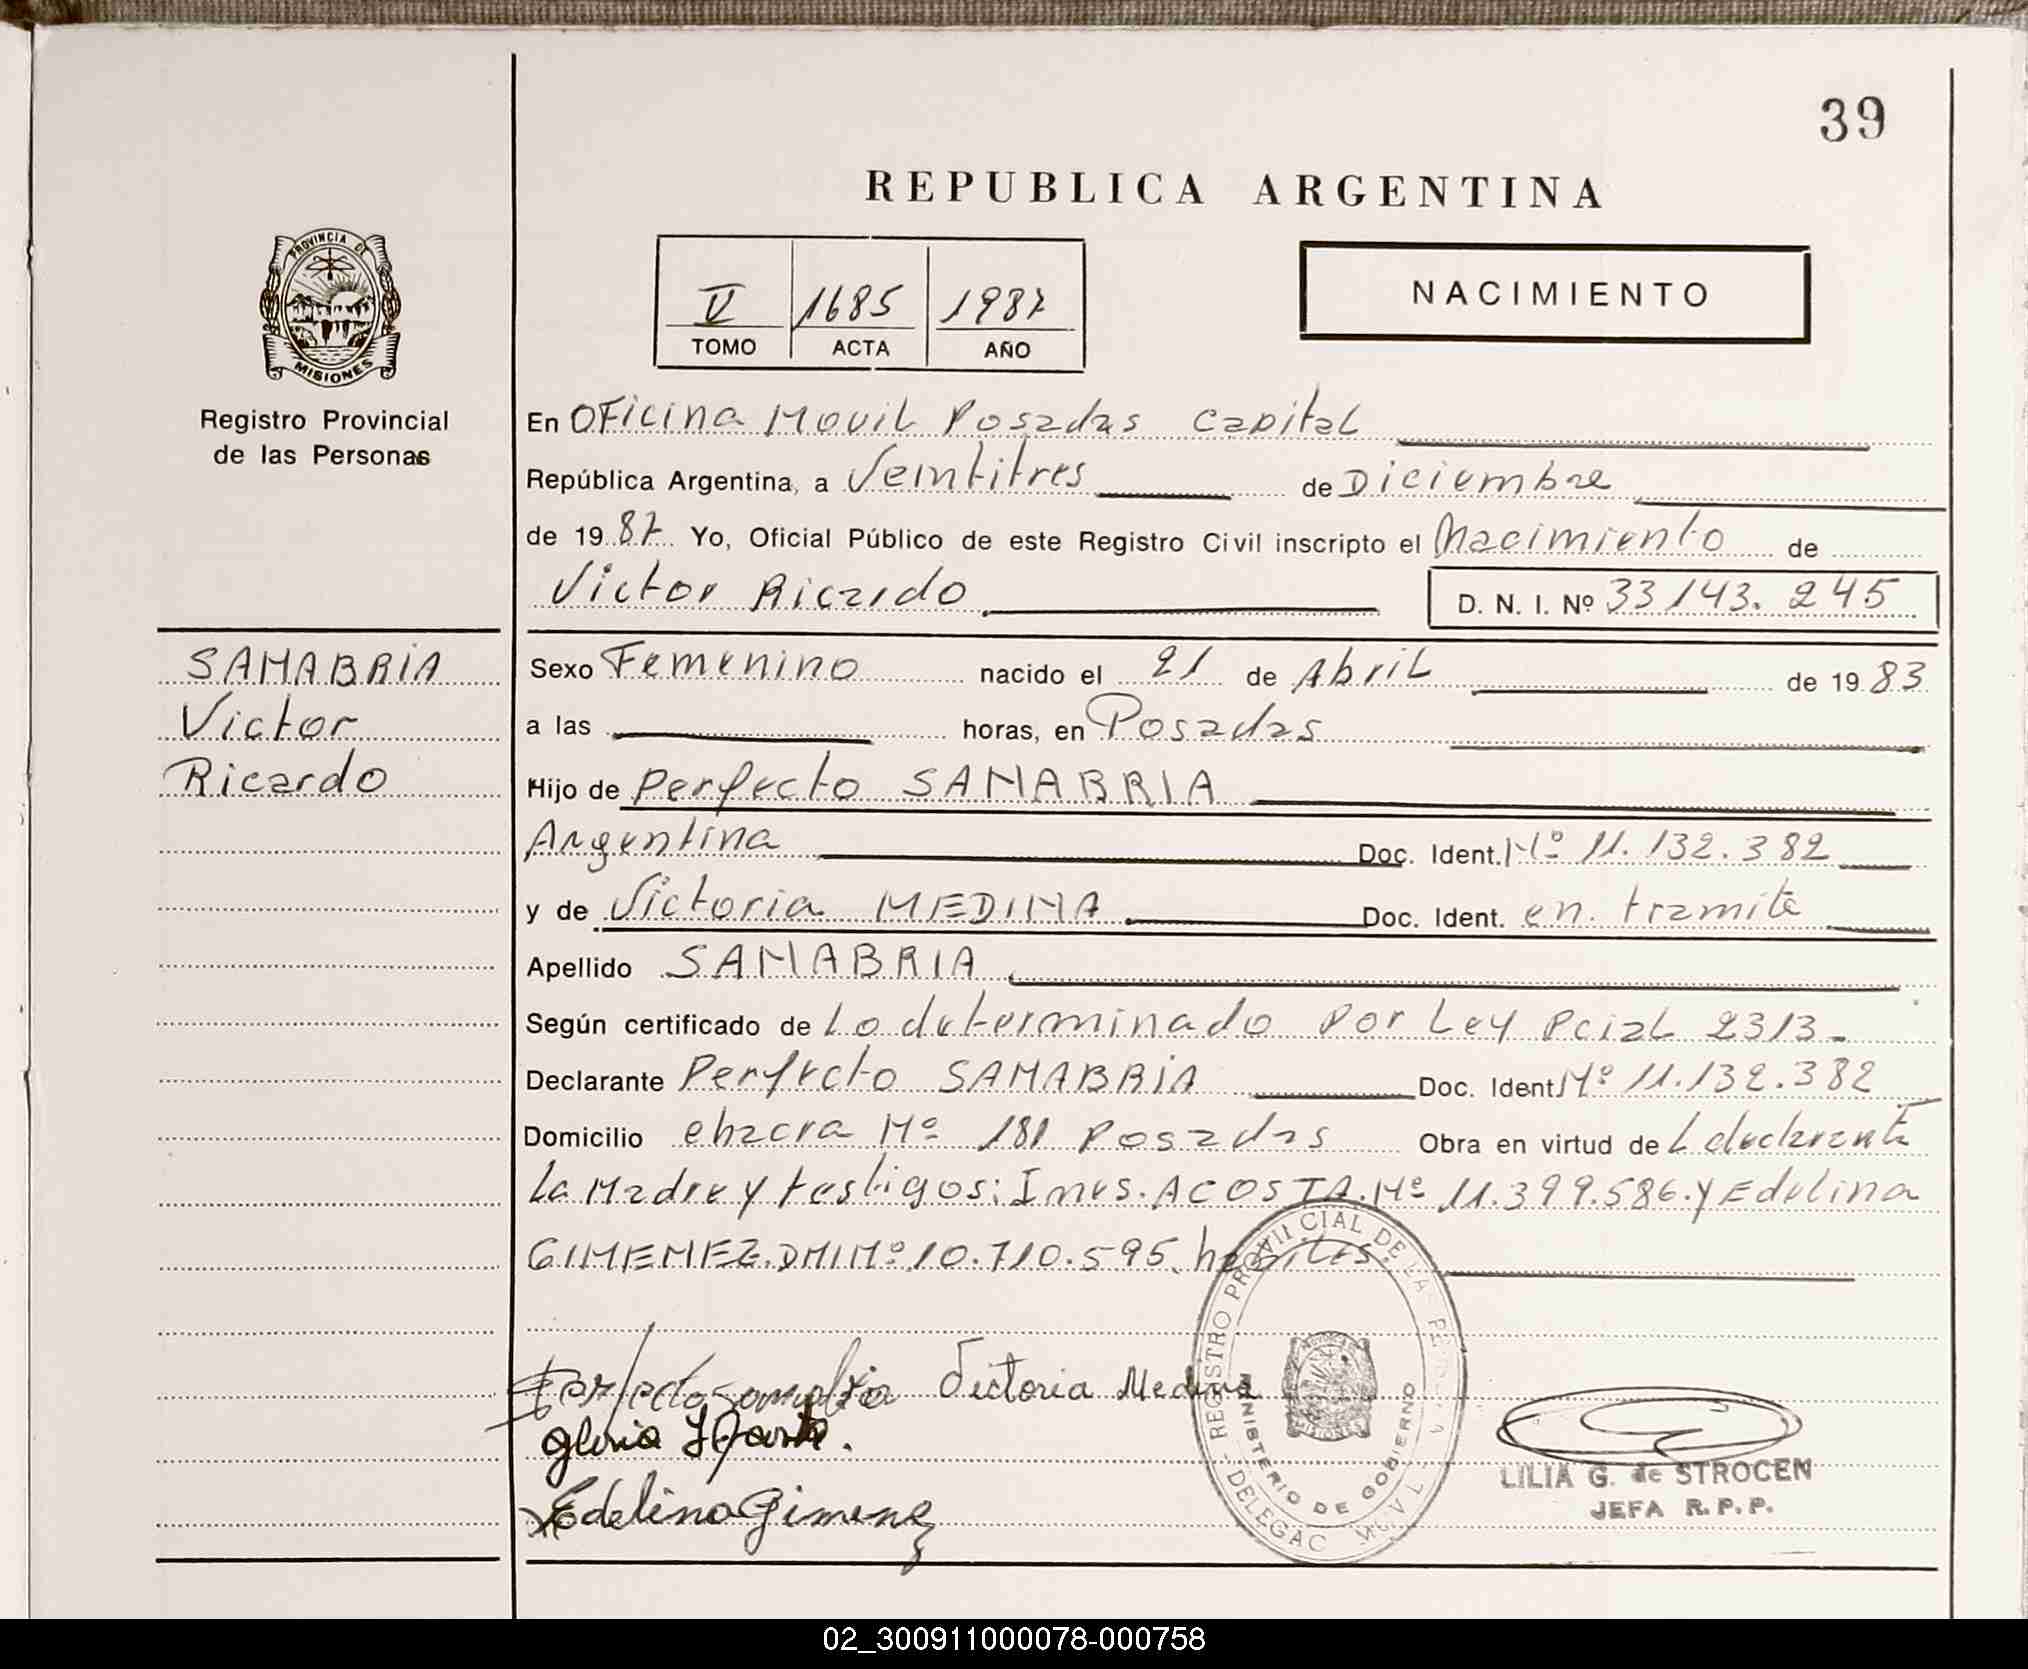 39
REPUBLICA ARGENTINA
PROVINCIA DE
MISIONES
Registro Provincial
de las Personas
V 1685 1987
TOMO ACTA AÑO
NACIMIENTO
En Oficina Movil Posadas Capital
República Argentina, a Veintitres de Diciembre
de 1987 Yo, Oficial Público de este Registro Civil inscripto el Nacimiento de
Victor Ricardo D. N. I. Nº 33143.245
SANABRIA
Victor
Ricardo
Sexo Femenino nacido el 21 de Abril de 1983
a las horas, en Posadas
Hijo de Perfecto SANABRIA
Argentina Doc. Ident. Nº 11.132.382
y de Victoria MEDINA Doc. Ident. en tramite
Apellido SANABRIA
Según certificado de Lo determinado por Ley Pcial 2313-
Declarante Perfecto SANABRIA Doc. Ident. Nº 11.132.382
Domicilio chacra Nº 181 Posadas Obra en virtud de L declarante
La Madre y testigos: Ines. ACOSTA. Nº 11.399.586. y Edelina
GIMENEZ. DNI Nº 10.710.595. habiles.
Perfecto Sanabria Victoria Medina
Gloria
Edelina Gimenez
REGISTRO PROVINCIAL DE LAS
MINISTERIO DE GOBIERNO
DELEGAC MOVIL
LILIA G. de STROCEN
JEFA R.P.P.
02_300911000078-000758